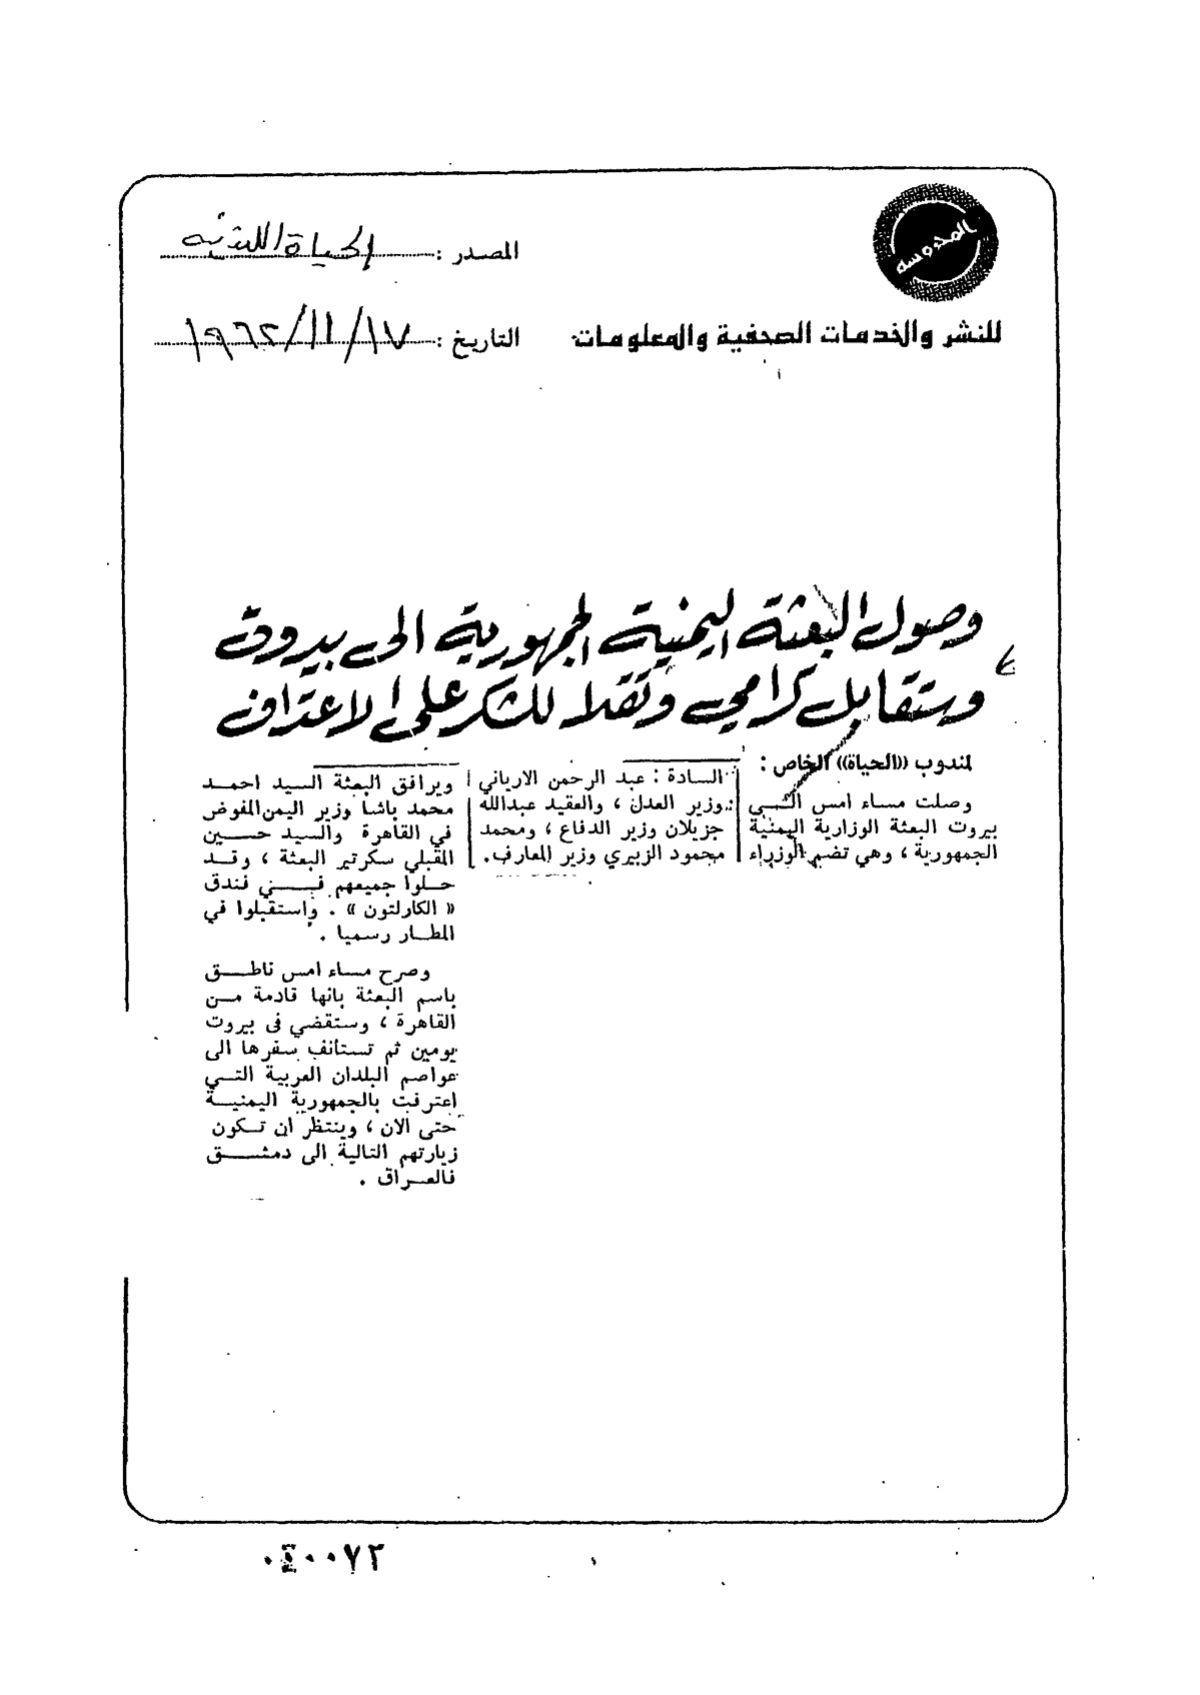 المحروسه
للنشر والخدمات الصحفية والمعلومات
المصدر : الحياة اللبنانية
التاريخ : ١٩٦٢/١١/١٧
وصول البعثة اليمنية الجمهورية الى بيروت
وستقابل كرامي وتقلا للشكر على الاعتراف
لمندوب «الحياة» الخاص :
وصلت مساء امس الى
بيروت البعثة الوزارية اليمنية
الجمهورية ، وهي تضم الوزراء
السادة : عبد الرحمن الارياني
وزير العدل ، والعقيد عبدالله
جزيلان وزير الدفاع ، ومحمد
محمود الزبيري وزير المعارف.
ويرافق البعثة السيد احمد
محمد باشا وزير اليمن المفوض
في القاهرة والسيد حسين
المقبلي سكرتير البعثة ، وقد
حلوا جميعهم في فندق
« الكارلتون » . واستقبلوا في
المطار رسميا .
وصرح مساء امس ناطق
باسم البعثة بانها قادمة من
القاهرة ، وستقضي في بيروت
يومين ثم تستأنف سفرها الى
عواصم البلدان العربية التي
اعترفت بالجمهورية اليمنية
حتى الان ، وينتظر ان تكون
زيارتهم التالية الى دمشق
فالعراق .